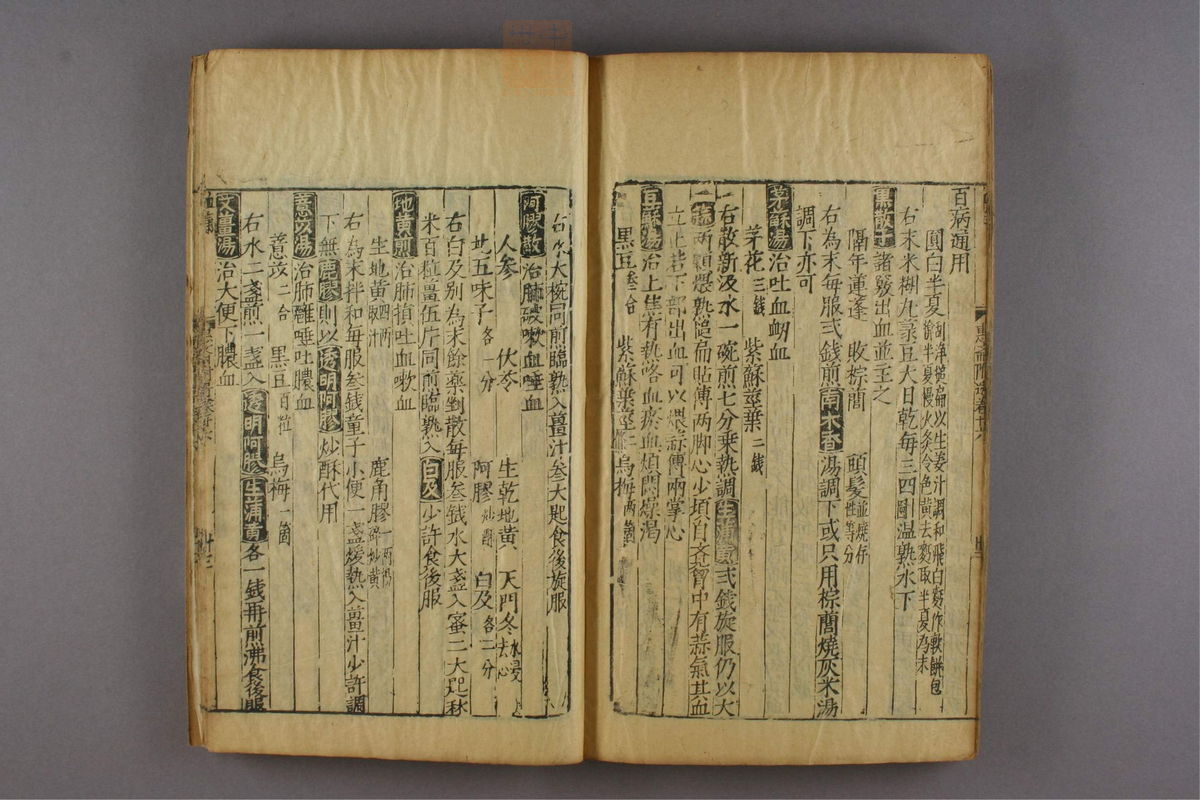 百病通用
圓白半夏 刮淨搥扁以生姜汁調和飛白麪作軟餅包
右末米糊丸菉豆大日乾每三四圓溫熟水下
黑散 諸竅出血並主之
隔年蓮蓬 敗棕藺 頭髮 並燒存性等分
右為末每服弍錢煎南木香湯調下或只用棕藺燒灰米湯
調下亦可
茅蘇湯 治吐血衂血
茅花 三錢 紫蘇莖葉 二錢
右散新汲水一碗煎七分乘熱調生蒲黃弍錢旋服仍以大
蒜兩顆煨熟搥扁貼傅兩脚心少頃自覺胷中有蒜氣其血
立止若下部出血可以煨蒜傅兩掌心
豆蘇湯 治上焦有熱咯血瘀血煩悶燥渴
黑豆 叁合 紫蘇葉莖 二 烏梅 兩箇
右水大椀同煎臨熟入薑汁叁大匙食後旋服
阿膠散 治肺破嗽血唾血
人參 伏苓 生乾地黃 天門冬 水浸去心
北五味子 各一分 阿膠 炒 白及 各二分
右白及別為末餘藥剉散每服叁錢水大盞入蜜二大匙秫
米百粒薑伍片同煎臨熟入白及少許食後服
地黃煎 治肺損吐血嗽血
生地黃 取汁 鹿角膠 一兩 碎炒黃
右為末拌和每服叁錢童子小便一盞煖熱入薑汁少許調
下無鹿膠則以透明阿膠炒酥代用
薏苡湯 治肺癰唾吐膿血
薏苡 二合 黑豆 百粒 烏梅 一箇
右水二盞煎一盞入透明阿膠生蒲黃各一錢再煎沸食後服
艾薑湯 治大便下膿血